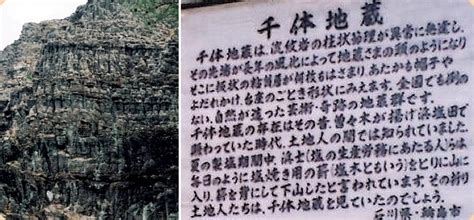 千体地蔵
千体地蔵は、流紋岩の柱状節理が異常に発達し、
その先端が長年の風化によって地蔵さまの頭のようになり
そこに板状の粘質層が何枚もはさまり、あたかも帽子や
よだれかけ、台座のごとき形状にみえます。全国でも例の
ない、自然が造った芸術・奇跡の地蔵群です。
千体地蔵の存在はその昔曽々木が揚げ浜塩田で
賑わっていた時代、土地人の間では知られていました
夏の製塩期間中、浜士(塩の生産労務にあたる人)らは
毎日のように塩焼き用の薪(塩木ともいう)をとりに山に
入り、薪を背にして下山したと言われています。その折り
土地人たちは、千体地蔵を見ていたのでしょう。
石川県・輪島市